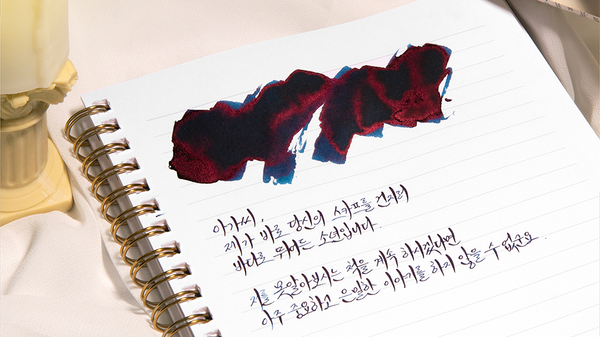 아가씨,
제가 바로 당신의 스카프를 건지러
바다로 뛰어든 소년입니다.
저를 못알아보시는 척을 계속 하시겠다면
아주 중요하고 은밀한 이야기를 하지 않을 수 없군요.